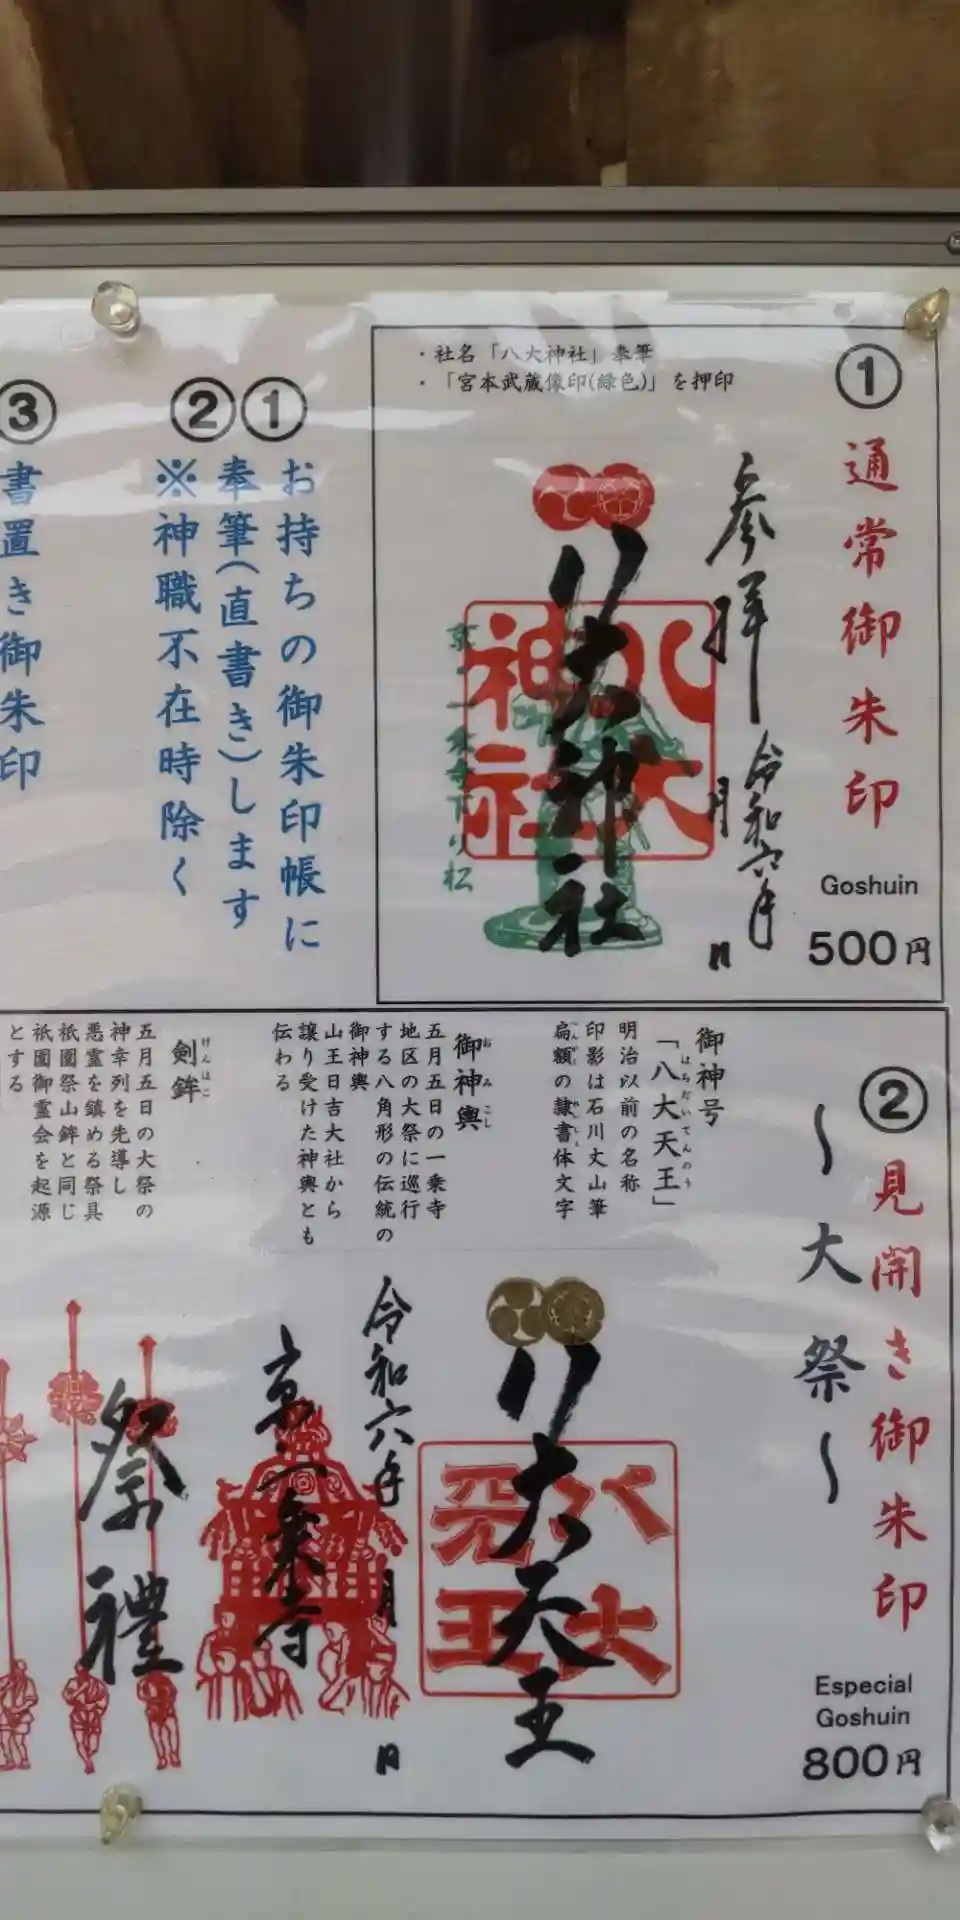 ・社名「八大神社」奉筆
・「宮本武蔵像印(緑色)」を押印
①
通常御朱印
Goshuin
500円
参拝
令和六年
月
日
八大神社
八大
神社
京
一乗寺下り松
①②
お持ちの御朱印帳に
奉筆(直書き)します
※神職不在時除く
③
書置き御朱印
②
見開き御朱印
～大祭～
Especial
Goshuin
800円
御神号
「八大天王」
はちだいてんのう
明治以前の名称
印影は石川丈山筆
扁額の隷書体文字
御神輿
おみこし
五月五日の一乗寺
地区の大祭に巡行
する八角形の伝統の
御神輿
山王日吉大社から
譲り受けた神輿とも
伝わる
剣鉾
けんほこ
五月五日の大祭の
神幸列を先導し
悪霊を鎮める祭具
祇園祭山鉾と同じ
祇園御霊会を起源
とする
八大天王
八大
王
令和六年
月
日
京一乗寺
祭禮